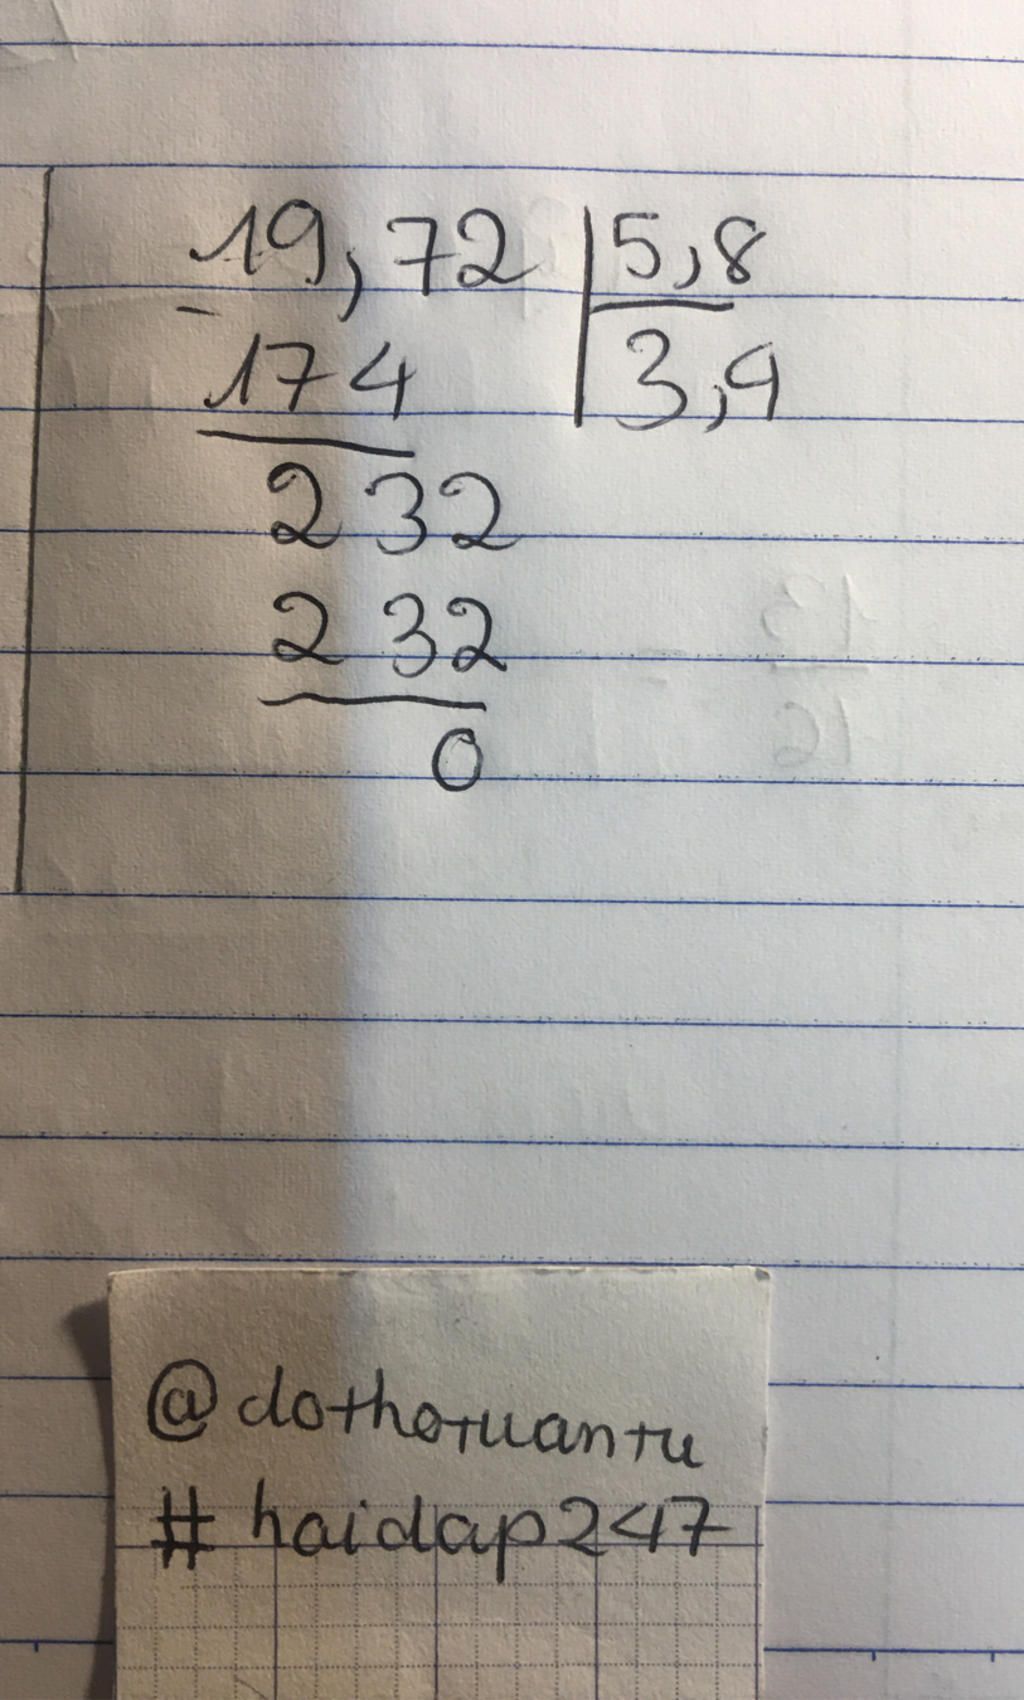 19,72 5,8
- 174 3,4
232
232
0
@dothotuantu
# haidap247